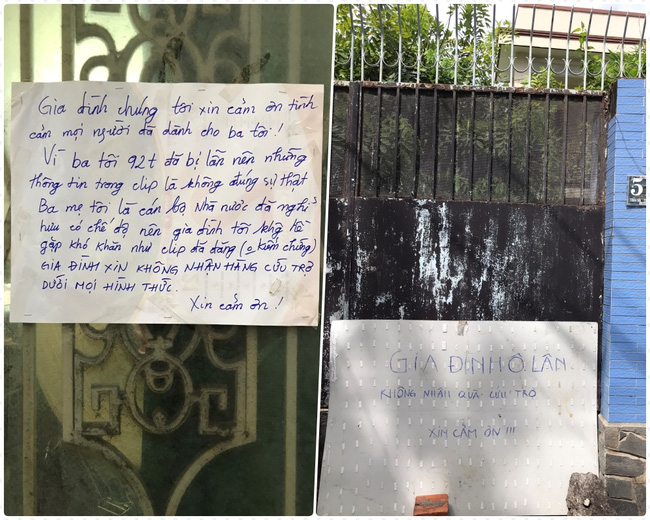 Gia đình chúng tôi xin cảm ơn tình
cảm mọi người đã dành cho ba tôi!
Vì ba tôi 92t đã bị lẫn nên những
thông tin trong clip là không đúng sự thật
Ba mẹ tôi là cán bộ Nhà nước đã nghỉ
hưu có chế độ nên gia đình tôi khg hề
gặp khó khăn như clip đã đăng (o kiểm chứng)
GIA ĐÌNH XIN KHÔNG NHẬN HÀNG CỨU TRỢ
DƯỚI MỌI HÌNH THỨC.
Xin cảm ơn!
5
GIA ĐÌNH Ô. LÂN
KHÔNG NHẬN QUÀ CỨU TRỢ
XIN CẢM ƠN!!!